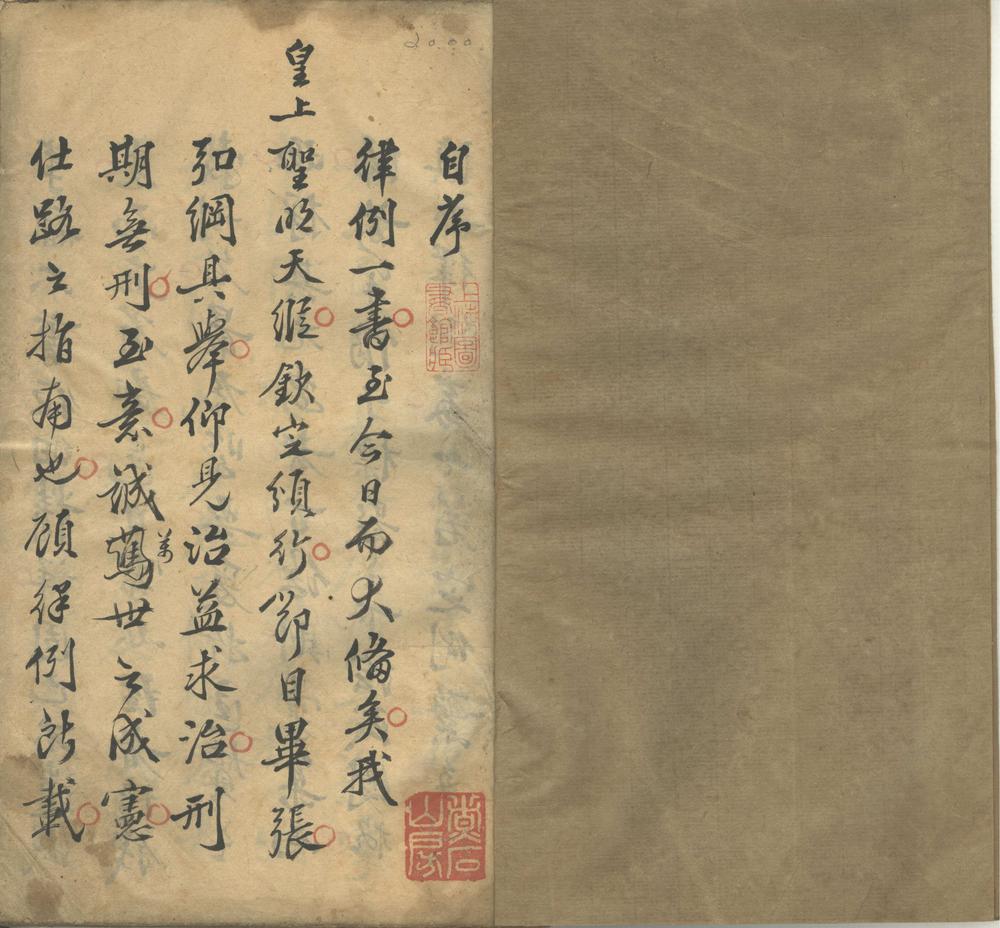 20.00
自序
律例一書至今日而大備矣我
皇上聖明天縱欽定頒行節目畢張
弘綱具舉仰見治益求治刑
期無刑至意誠萬世之成憲
仕路之指南也顧律例所載
上海圖
書館藏
石
山房